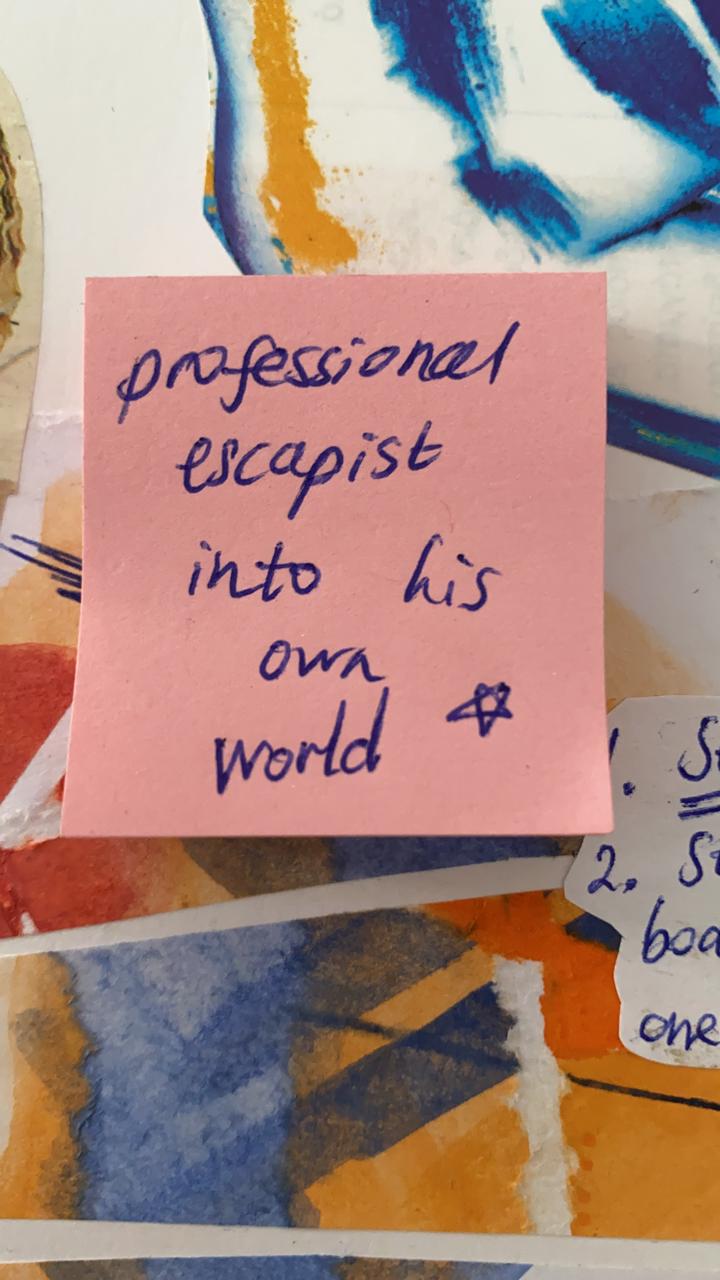 professional
escapist
into his
own
world ☆
1.
2.
one